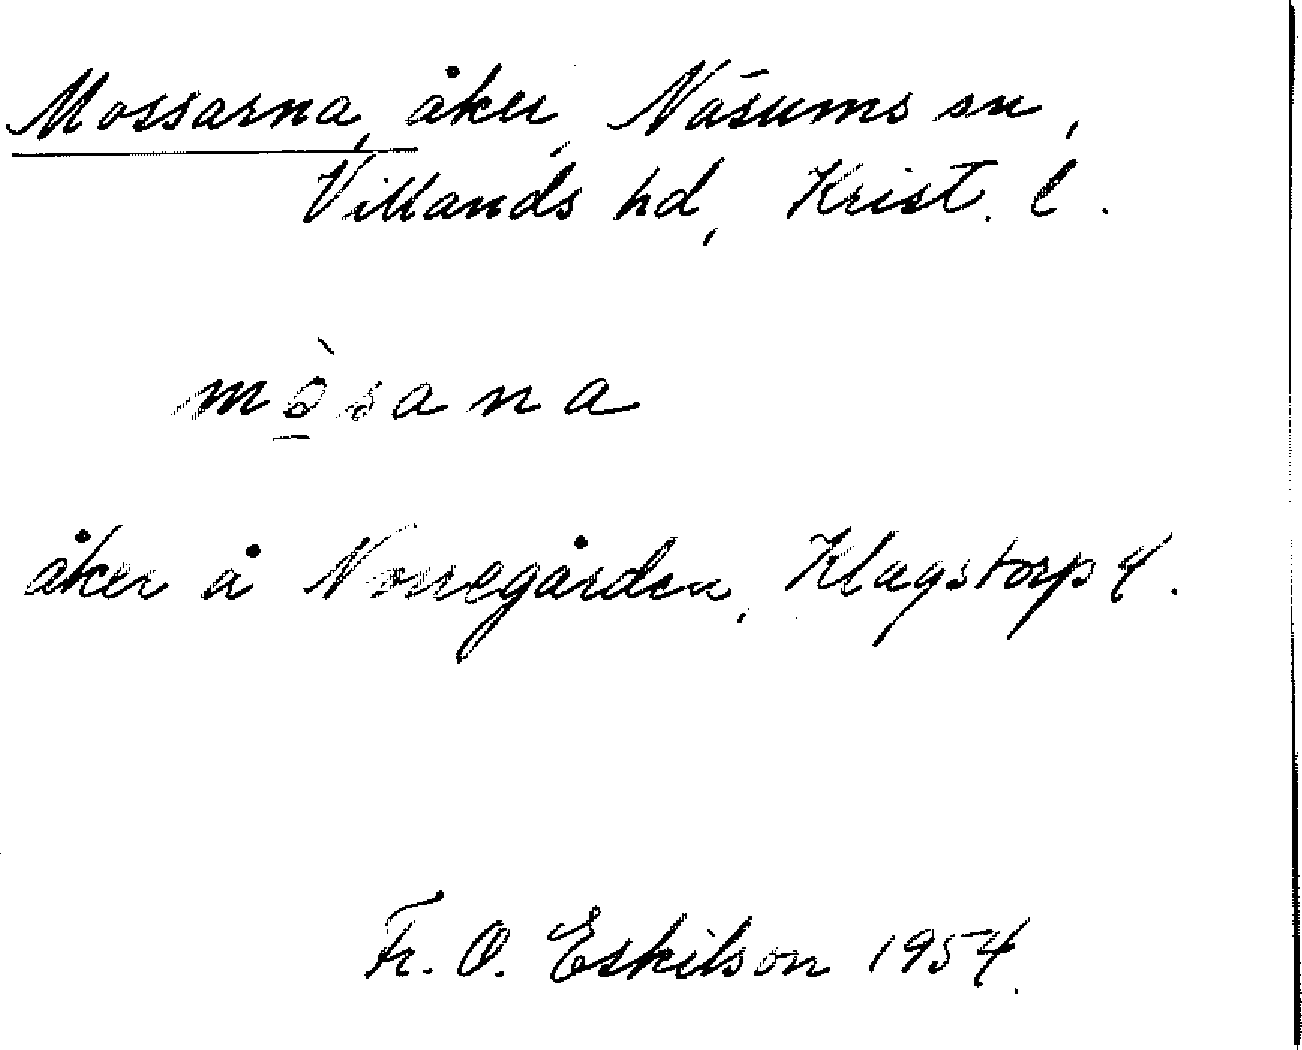 Mossarna, åker, Näsums sn,
Villands hd, Krist. l.
mò̱sana
åker å Norregården, Klagstorp 4.
Fr. O. Eskilson 1954.